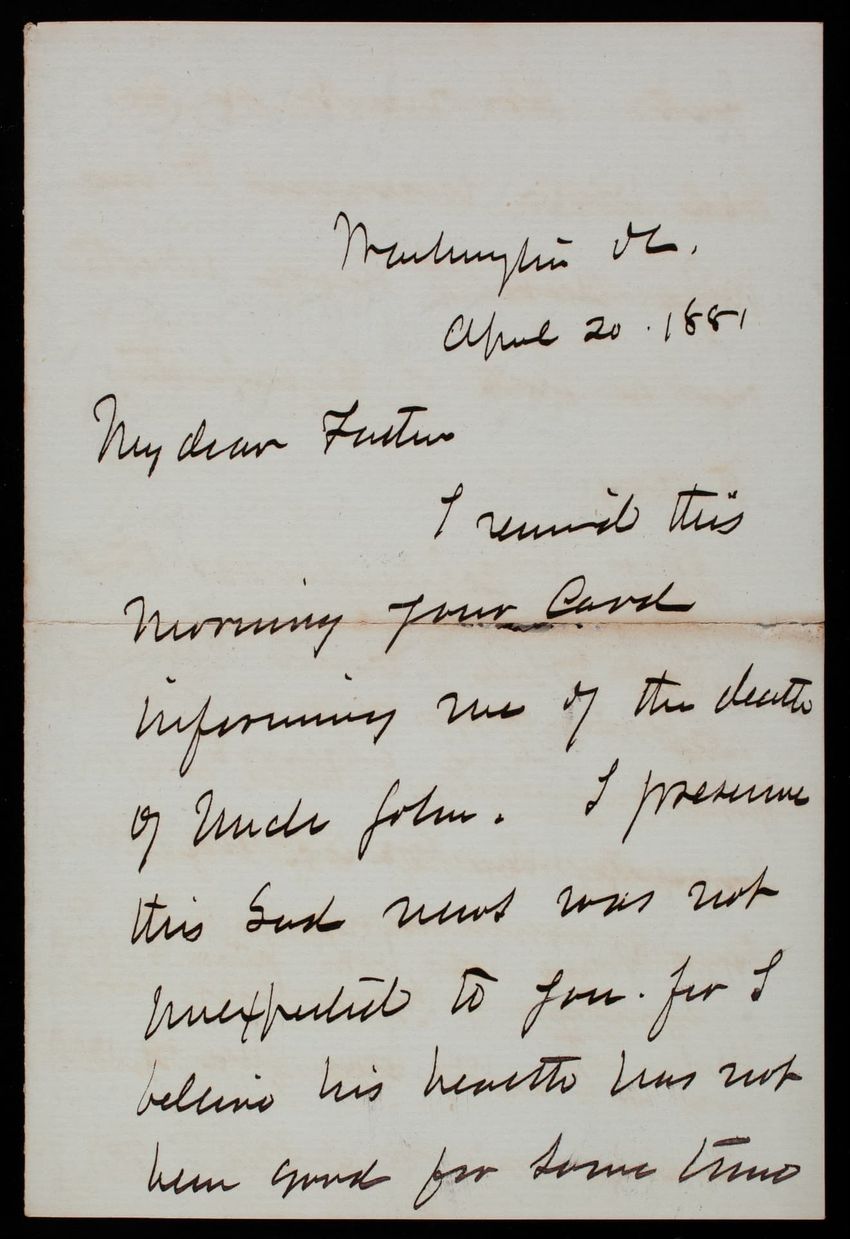 Washington DC.
April 20. 1881
My dear
I received this
morning your Card
informing me of the death
of Uncle John. I presume
this Sad news was not
unexpected to you. for I
believe his health has not
been good for some time